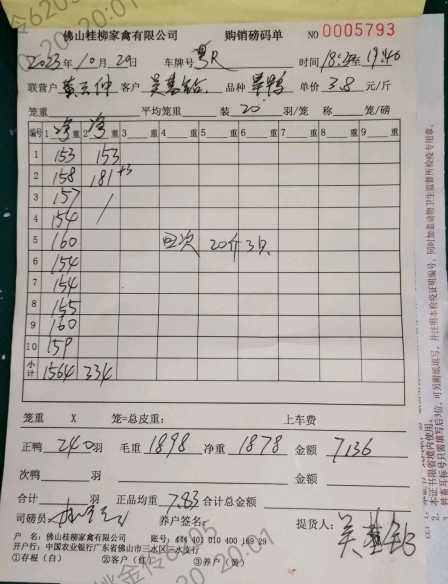 佛山桂柳家禽有限公司 购销磅码单 NO 0005793
2023年10月29日 车牌号 粤R 时间 19:46
联营户 客户 品种 单价 3.8 元/斤
笼重 平均笼重 装 20 羽/笼 称 笼/磅
编号 1 净 重 2 净 重 3 重 4 重 5 重 6 重 7 重 8 重 9 重
1 153 153
2 158 181+3
3 157 /
4 154
5 160 回次 20斤3只
6 154
7 154
8 155
9 160
10 159
小计 1564 334
笼重 X 笼=总皮重: 上车费
正鸭 240 羽 毛重 1898 净重 1878 金额 7136
次鸭 羽 金额
合计 羽 正品均重 7.83 合计总金额
司磅员 养户签名: 提货人:
户 名: 佛山桂柳家禽有限公司 账号: 444 401 010 400 169 29
开户行: 中国农业银行广东省佛山市三水区三水支行
①存根(白) ②客户(红) ③养户(黄)